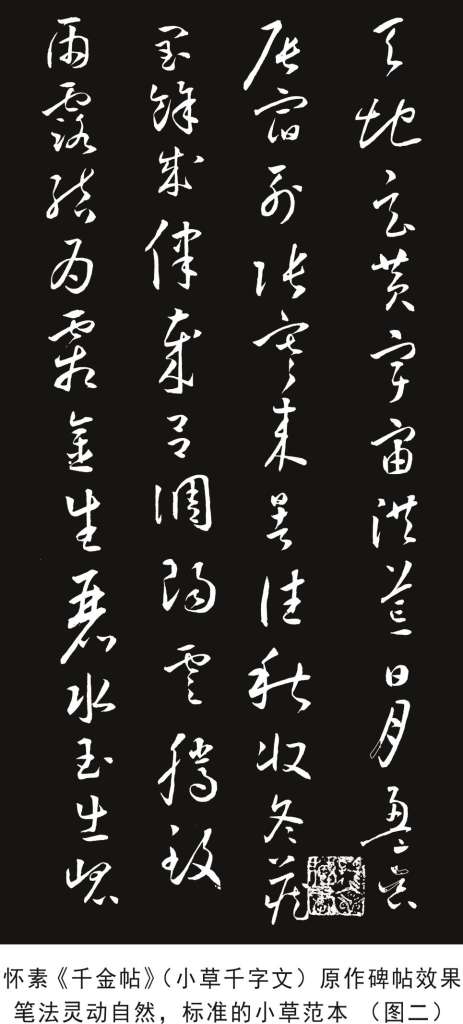 天地玄黄宇宙洪荒日月盈昃
辰宿列張寒來暑往秋收冬藏
閏餘成律歲呂調陽雲騰致
雨露結為霜金生麗水玉出崐
怀素《千金帖》（小草千字文）原作碑帖效果
笔法灵动自然，标准的小草范本 （图二）